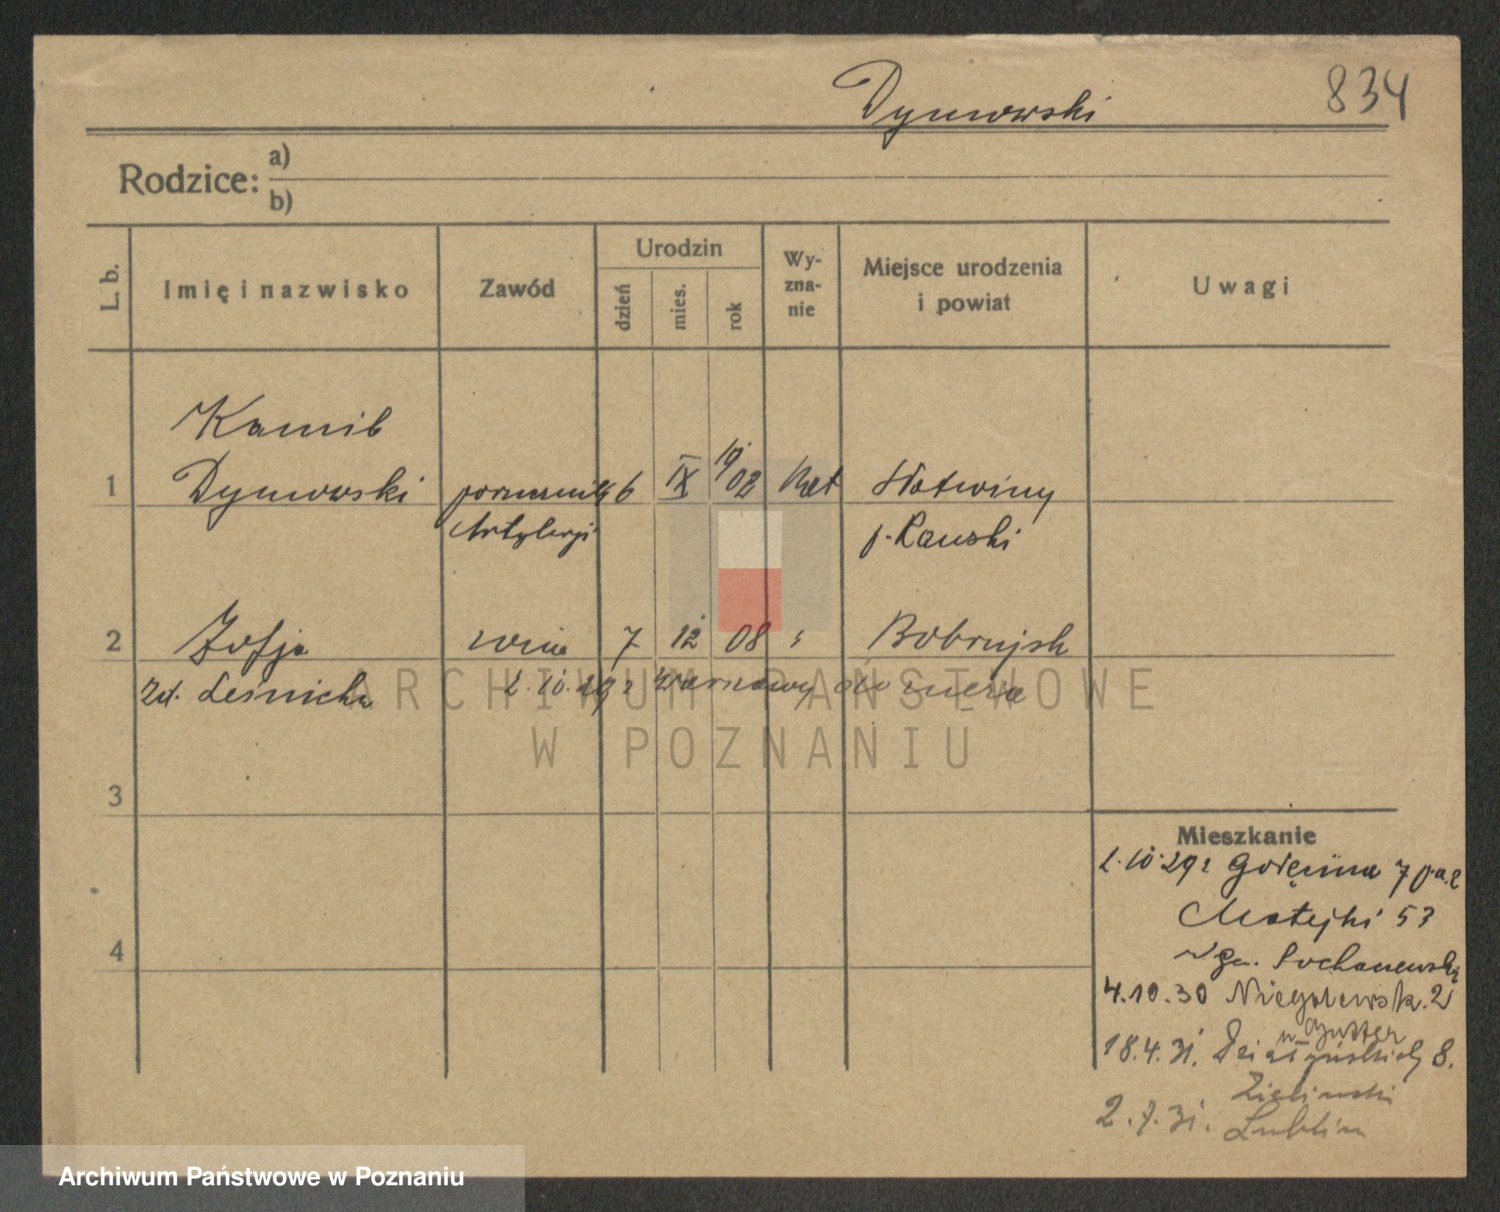 Dymowski 834
Rodzice: a)
b)
L. b. Imię i nazwisko Zawód Urodzin dzień mies. rok Wy-zna-nie Miejsce urodzenia i powiat Uwagi
Kamil
1 Dymowski porucznik 6 IX 19 02 Kat Słotwiny
Artylerji p. Rawski
2 Zofja 7 12 08 " Bobrujsk
zd. Leśnicka 1.10.29 z Warszawy do męża
ARCHIWUM PAŃSTWOWE
W POZNANIU
3
Mieszkanie
1.10.29 Golęcina 7 p.a.c
Matejki 53
4
Sochaczewski
4.10.30 Niegolewsk. 2
18.4.31. Działyńskich 8.
Zieliński
2.7.31. Lublin
Archiwum Państwowe w Poznaniu